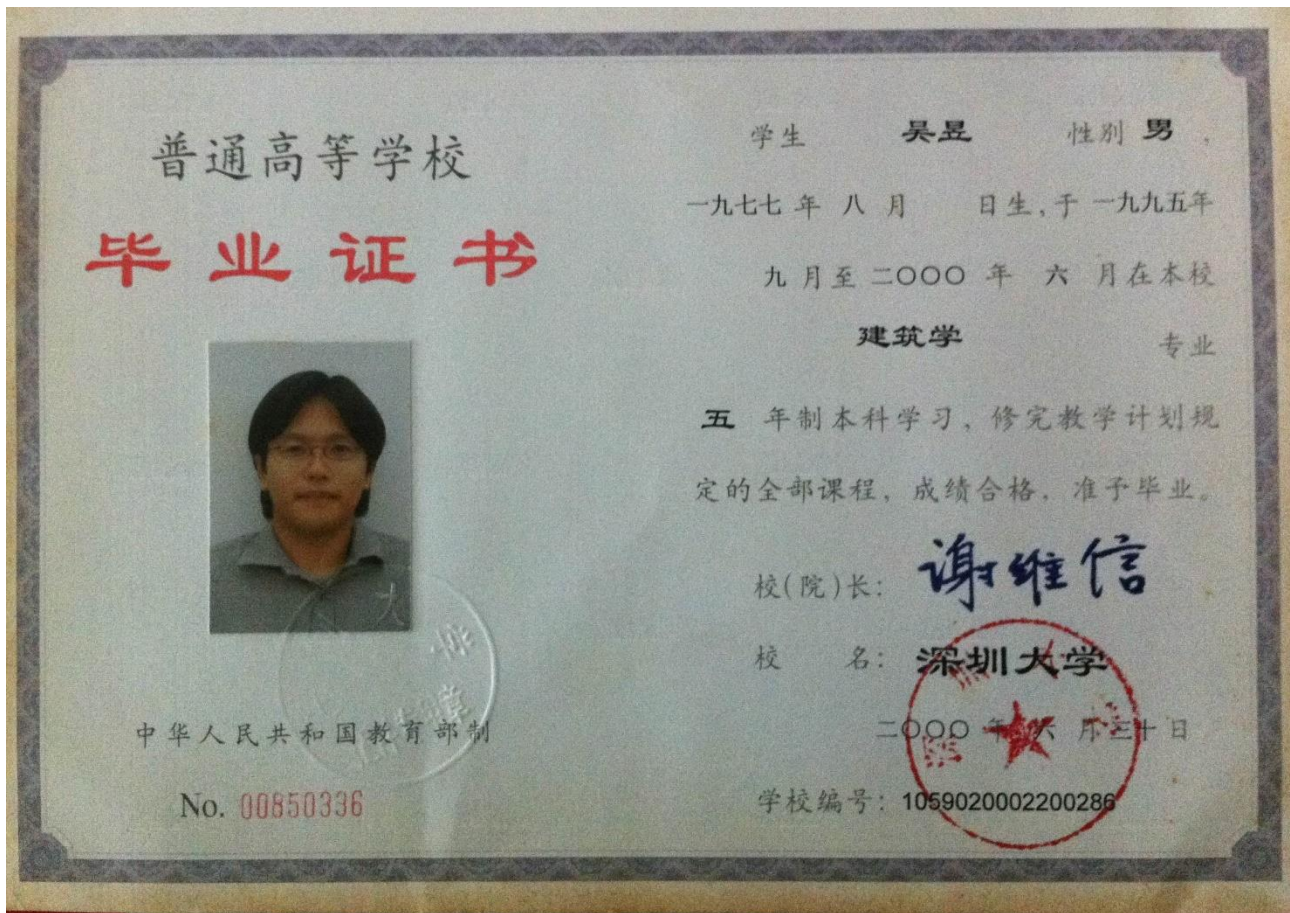 普通高等学校
毕业证书
中华人民共和国教育部制
No. 00850336
学生 吴昱 性别 男，
一九七七 年 八 月 日生，于 一九九五年
九 月至 二〇〇〇 年 六 月在本校
建筑学 专业
五 年制本科学习、修完教学计划规
定的全部课程，成绩合格，准予毕业。
校(院)长：谢维信
校 名：深圳大学
二〇〇〇 年 六 月 三十 日
学校编号：1059020002200286